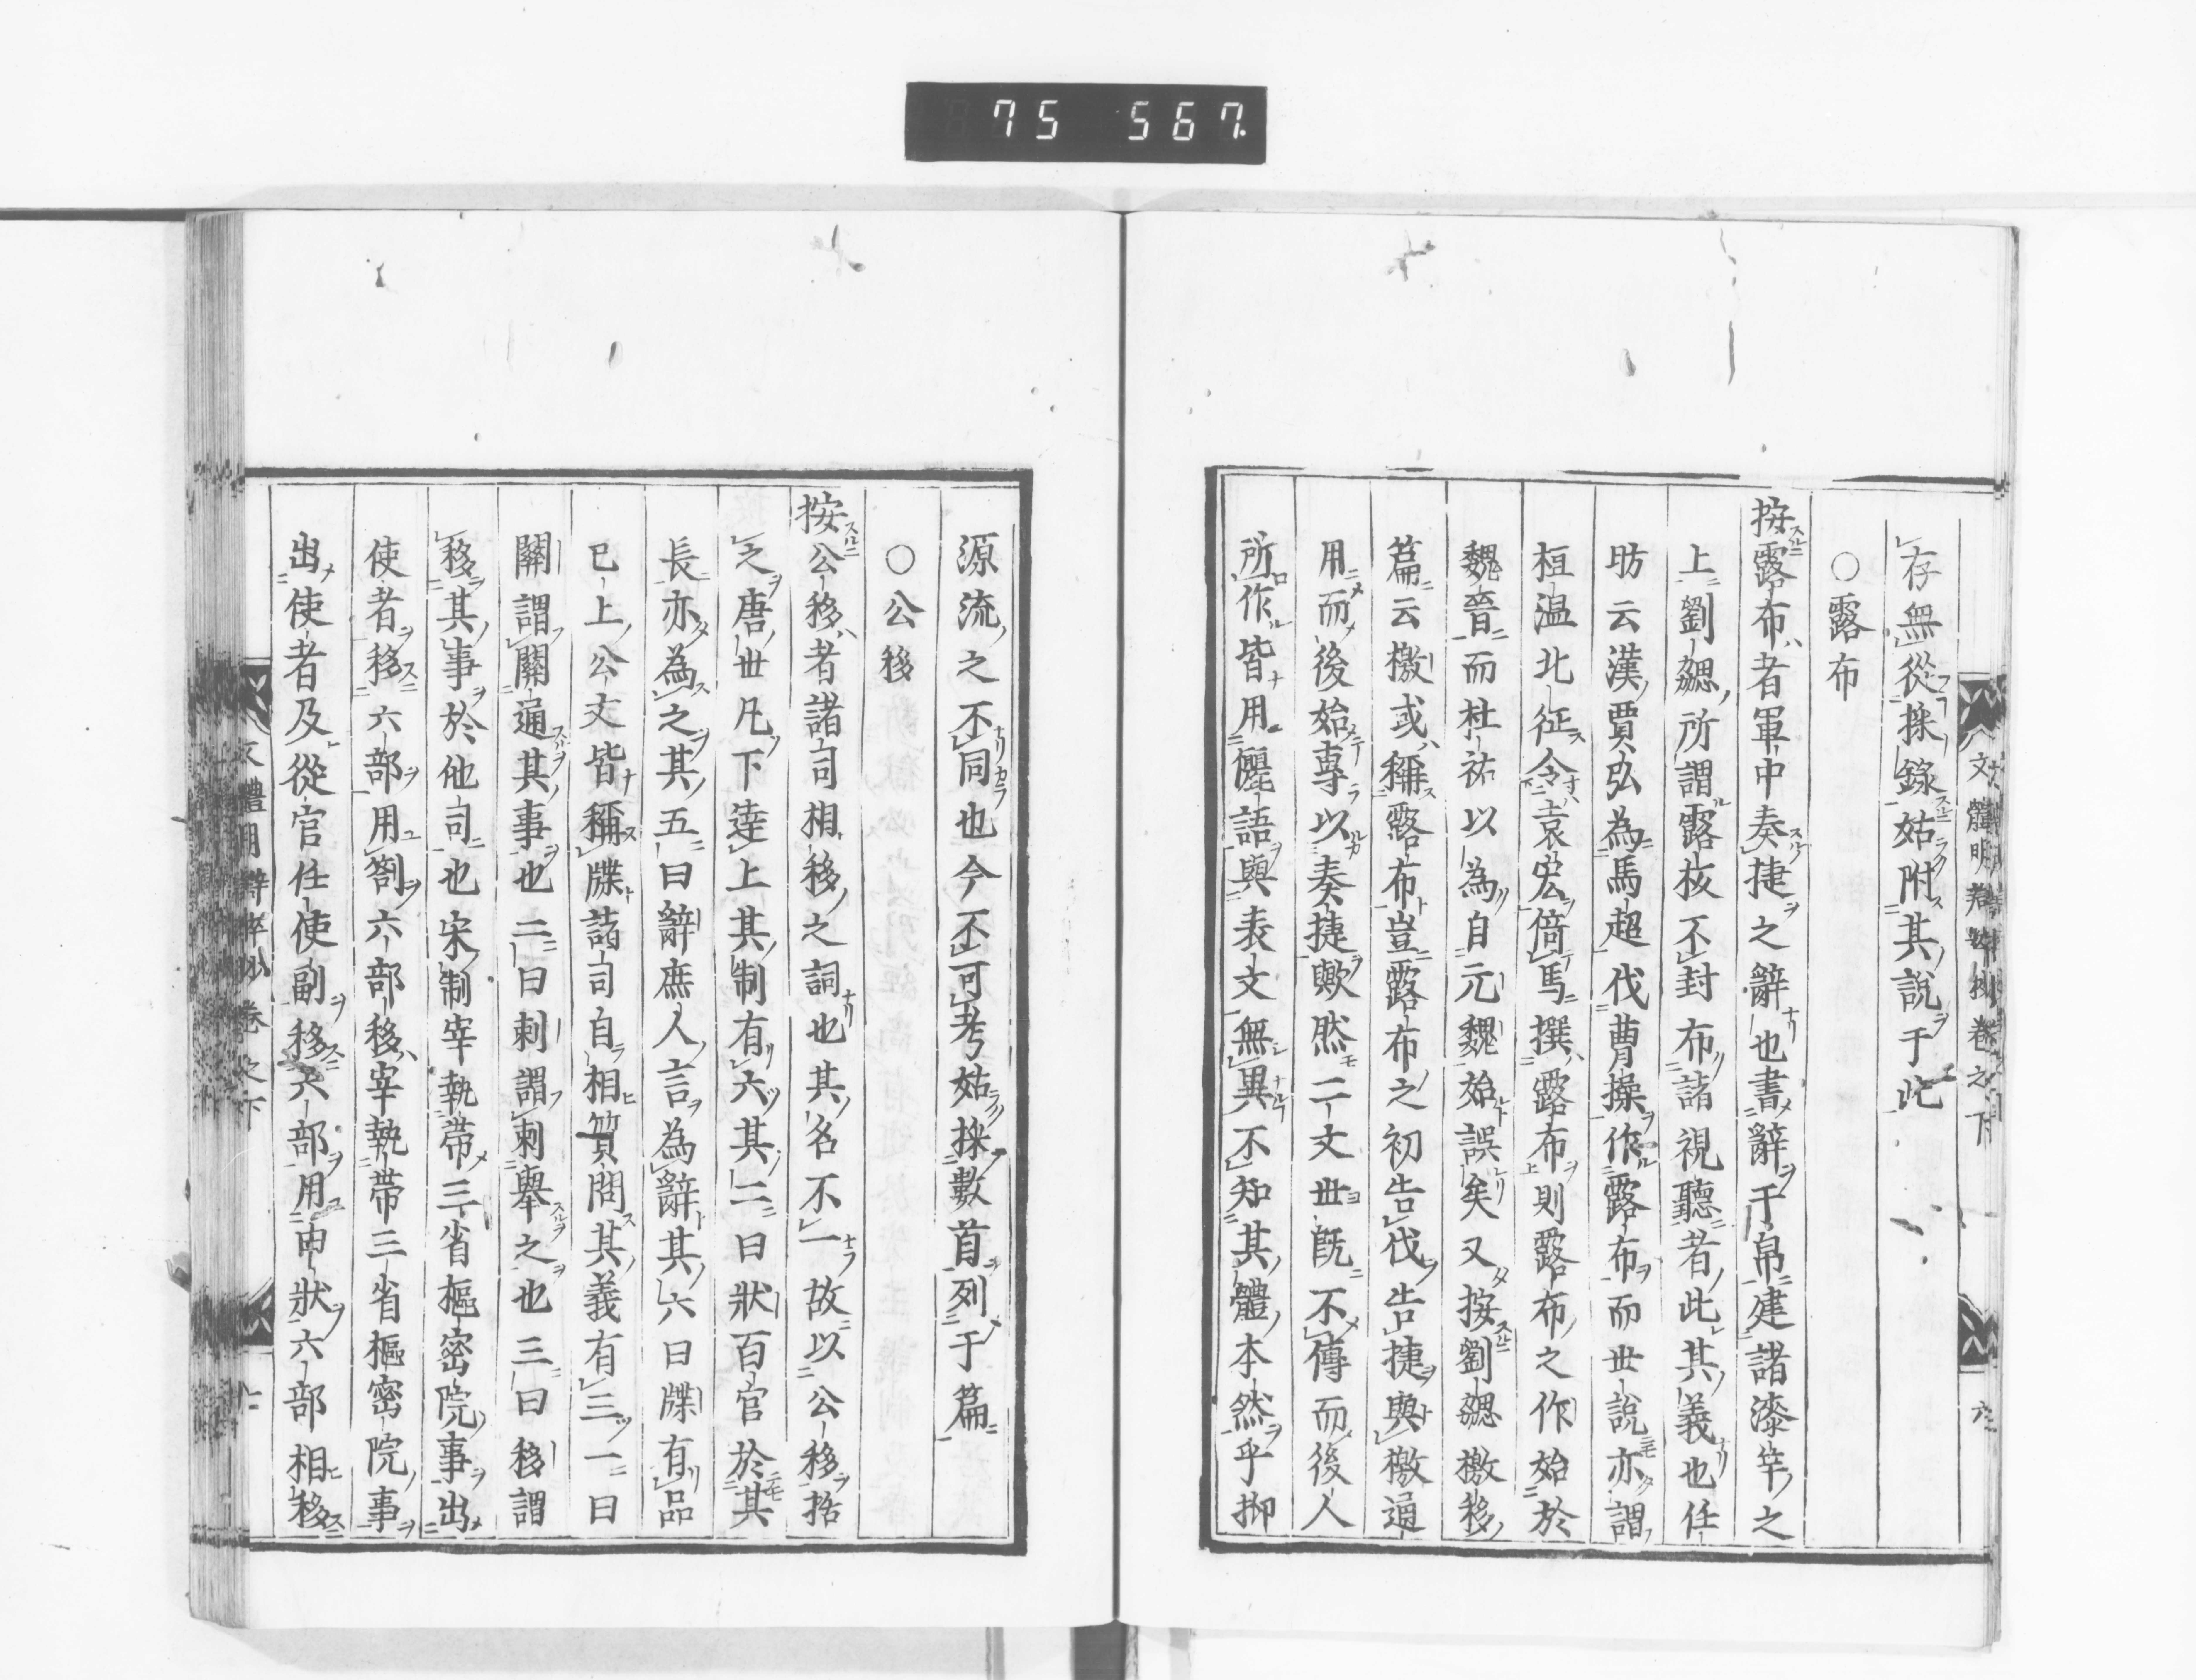 75 567
文體明辯粹抄卷之下
六
存無從採錄姑附其說于此
○露布
按露布者軍中奏捷之辭也書辭于帛建諸漆竿之
上劉勰所謂露板不封布諸視聽者此其義也任
昉云漢賈弘為馬超伐曹操作露布而世說亦謂
桓温北征令袁宏倚馬撰露布則露布之作始於
魏晉而杜祐以為自元魏始誤矣又按劉勰檄移
篇云檄或稱露布豈露布之初告伐告捷與檄通
用而後始專以奏捷歟然二文世旣不傳而後人
所作皆用儷語與表文無異不知其體本然乎抑
源流之不同也今不可考姑採數首列于篇
○公移
按公移者諸司相移之詞也其名不一故以公移括
之唐世凡下達上其制有六其二曰狀百官於其
長亦為之其五曰辭庶人言為辭其六曰牒有品
已上公文皆稱牒諸司自相質問其義有三一曰
關謂關通其事也二曰刺謂刺舉之也三曰移謂
移其事於他司也宋制宰執帶三省樞密院事出
使者移六部用劄六部移宰執帶三省樞密院事
出使者及從官任使副移六部用申狀六部相移
文體明辯粹抄卷之下